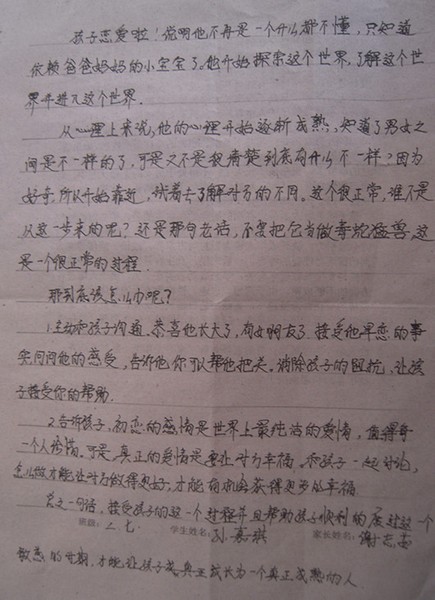 孩子恋爱啦！说明他不再是一个什么都不懂，只知道
依赖爸爸妈妈的小宝宝了。他开始探索这个世界，了解这个世
界并进入这个世界．
从心理上来说，他的心理开始逐渐成熟，知道了男女之
间是不一样的了，可是又不是很清楚到底有什么不一样？因为
好奇，所以开始靠近，试着去了解对方的不同。这个很正常，谁不是
从这一步来的呢？还是那句老话，不要把它当做毒蛇猛兽，这
是一个很正常的过程．
那到底该怎么办呢？
1.主动和孩子沟通，恭喜他长大了，有女朋友了．接受他早恋的事
实问问他的感受，告诉他你可以帮他把关．消除孩子的阻抗，让孩
子接受你的帮助．
2.告诉孩子，初恋的感情是世界上最纯洁的爱情，值得每
一个人珍惜．可是，真正的爱情是要让对方幸福．和孩子一起讨论，
怎么做才能让对方做得更好，才能有机会获得更多的幸福．
总之一句话，接受孩子的这一个过程并且帮助孩子顺利的度过这一个
班级：二.七． 学生姓名：孙嘉琪 家长姓名：谢志
敏感的时期，才能让孩子真正成长为一个真正成熟的人．